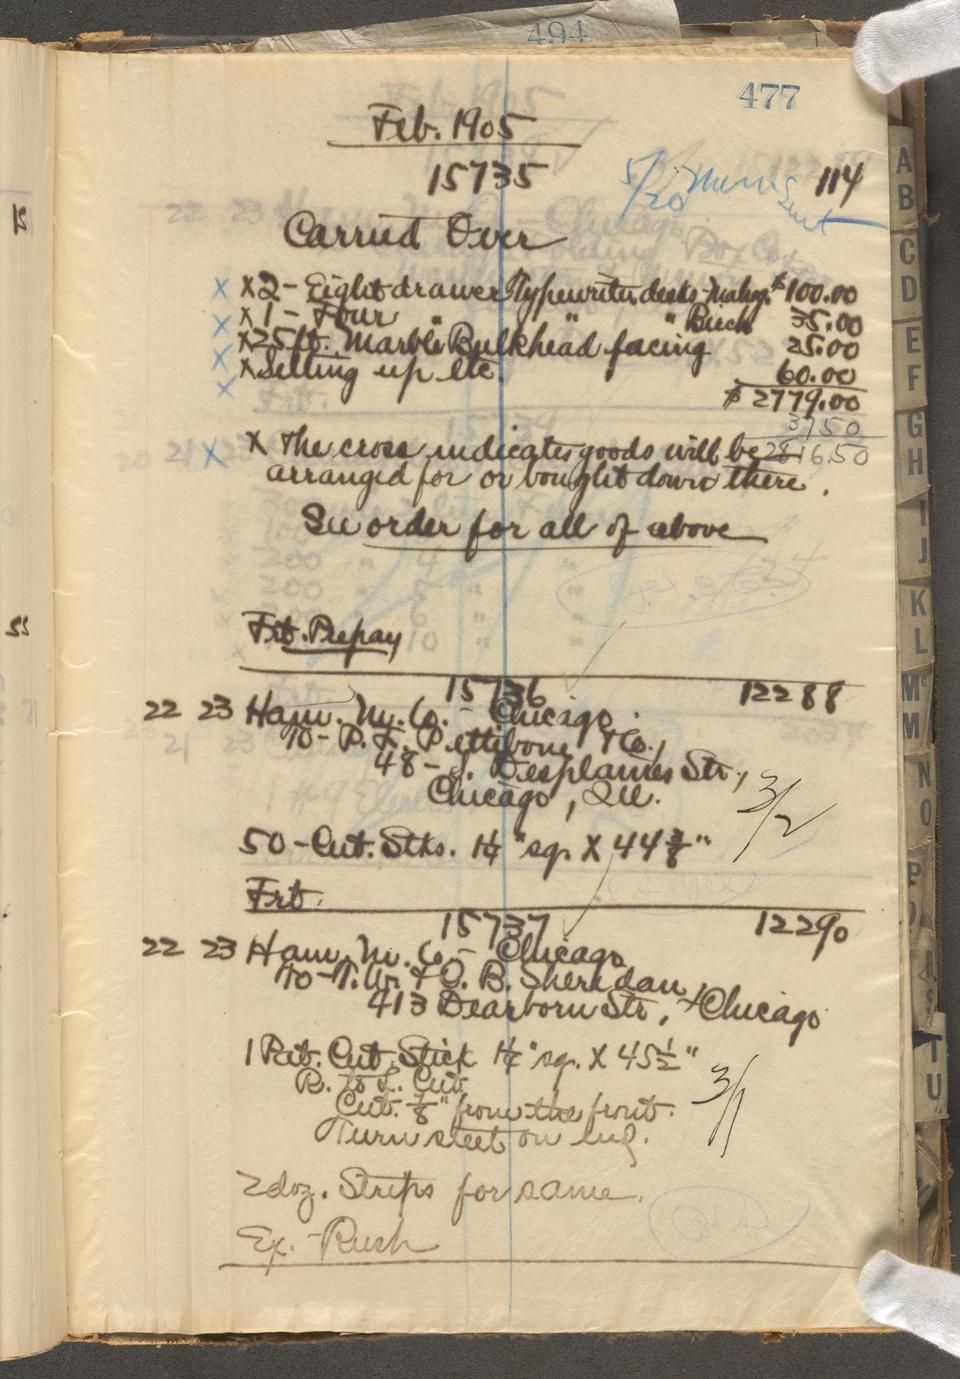 494
477
Feb. 1905
15735
114
5/20
Carried Over
x x 2 - Eight drawer Typewriter desks - Mahog. $100.00
x x 1 - Four " " " Birch 35.00
x x 25 ft. Marble Bulkhead facing 25.00
x x Setting up etc. 60.00
$ 2779.00
37.50
2816.50
x x The cross indicates goods will be
arranged for or bought down there.
See order for all of above
Frt. Prepay
15736 12288
22 23 Ham. M. Co. - Chicago.
To - P. F. Pettibone & Co.,
48 - S. Desplaines Str.,
Chicago, Ill.
3/2
50 - Cut. Stks. 1¼ " sq. X 44 ⅞"
Frt.
15737 12290
22 23 Ham. M. Co. - Chicago
To - T. W. & O. B. Sheridan,
413 Dearborn Str., Chicago
1 Pat. Cut. Stick 1¼ " sq. X 45½"
R. to L. Cut.
Cut. ⅞" from the front.
Turn steel on lug.
3/1
2 doz. Strips for same.
Ex. Rush
A
B
C
D
E
F
G
H
I
J
K
L
Mc
M
N
O
P
R
S
T
U
21
55